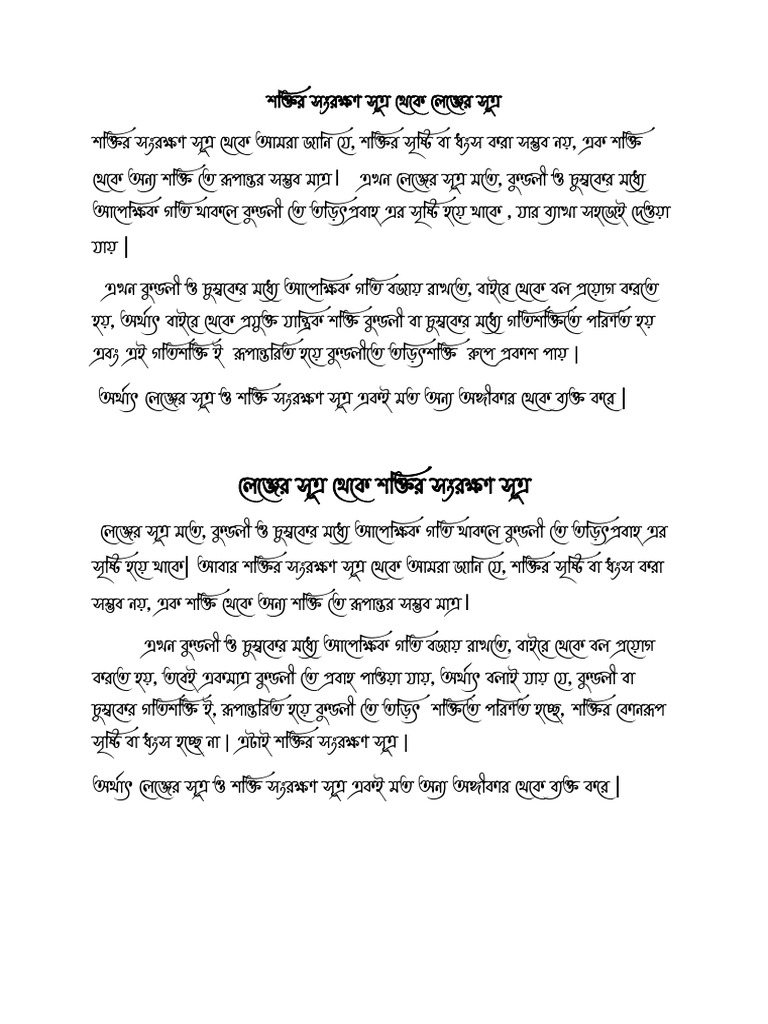 শক্তির সংরক্ষণ সূত্র থেকে লেঞ্জের সূত্র
শক্তির সংরক্ষণ সূত্র থেকে আমরা জানি যে, শক্তির সৃষ্টি বা ধংস করা সম্ভব নয়, এক শক্তি
থেকে অন্য শক্তি তে রূপান্তর সম্ভব মাত্র| এখন লেঞ্জের সূত্র মতে, কুন্ডলী ও চুম্বকের মধ্যে
আপেক্ষিক গতি থাকলে কুন্ডলী তে তড়িৎপ্রবাহ এর সৃষ্টি হয়ে থাকে , যার ব্যাখা সহজেই দেওয়া
যায় |
এখন কুন্ডলী ও চুম্বকের মধ্যে আপেক্ষিক গতি বজায় রাখতে, বাইরে থেকে বল প্রয়োগ করতে
হয়, অর্থাৎ বাইরে থেকে প্রযুক্ত যান্ত্রিক শক্তি কুন্ডলী বা চুম্বকের মধ্যে গতিশক্তিতে পরিণত হয়
এবং এই গতিশক্তি ই রূপান্তরিত হয়ে কুন্ডলীতে তড়িৎশক্তি রুপে প্রকাশ পায় |
অর্থাৎ লেঞ্জের সূত্র ও শক্তি সংরক্ষণ সূত্র একই মত অন্য অঙ্গীকার থেকে ব্যক্ত করে |
লেঞ্জের সূত্র থেকে শক্তির সংরক্ষণ সূত্র
লেঞ্জের সূত্র মতে, কুন্ডলী ও চুম্বকের মধ্যে আপেক্ষিক গতি থাকলে কুন্ডলী তে তড়িৎপ্রবাহ এর
সৃষ্টি হয়ে থাকে| আবার শক্তির সংরক্ষণ সূত্র থেকে আমরা জানি যে, শক্তির সৃষ্টি বা ধংস করা
সম্ভব নয়, এক শক্তি থেকে অন্য শক্তি তে রূপান্তর সম্ভব মাত্র|
এখন কুন্ডলী ও চুম্বকের মধ্যে আপেক্ষিক গতি বজায় রাখতে, বাইরে থেকে বল প্রয়োগ
করতে হয়, তবেই একমাত্র কুন্ডলী তে প্রবাহ পাওয়া যায়, অর্থাৎ বলাই যায় যে, কুন্ডলী বা
চুম্বকের গতিশক্তি ই, রূপান্তরিত হয়ে কুন্ডলী তে তড়িৎ শক্তিতে পরিণত হচ্ছে, শক্তির কোনরূপ
সৃষ্টি বা ধংস হচ্ছে না | এটাই শক্তির সংরক্ষণ সূত্র |
অর্থাৎ লেঞ্জের সূত্র ও শক্তি সংরক্ষণ সূত্র একই মত অন্য অঙ্গীকার থেকে ব্যক্ত করে |